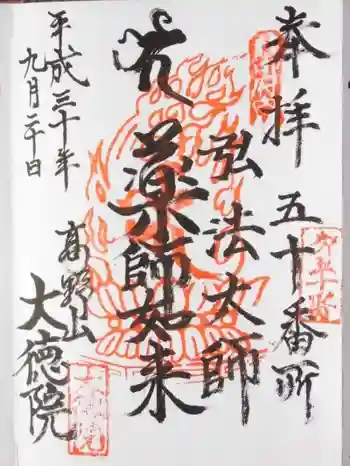 奉拝
五十番所
弘法大師
薬師如来
平成三十年
九月二十日
高野山
大徳院